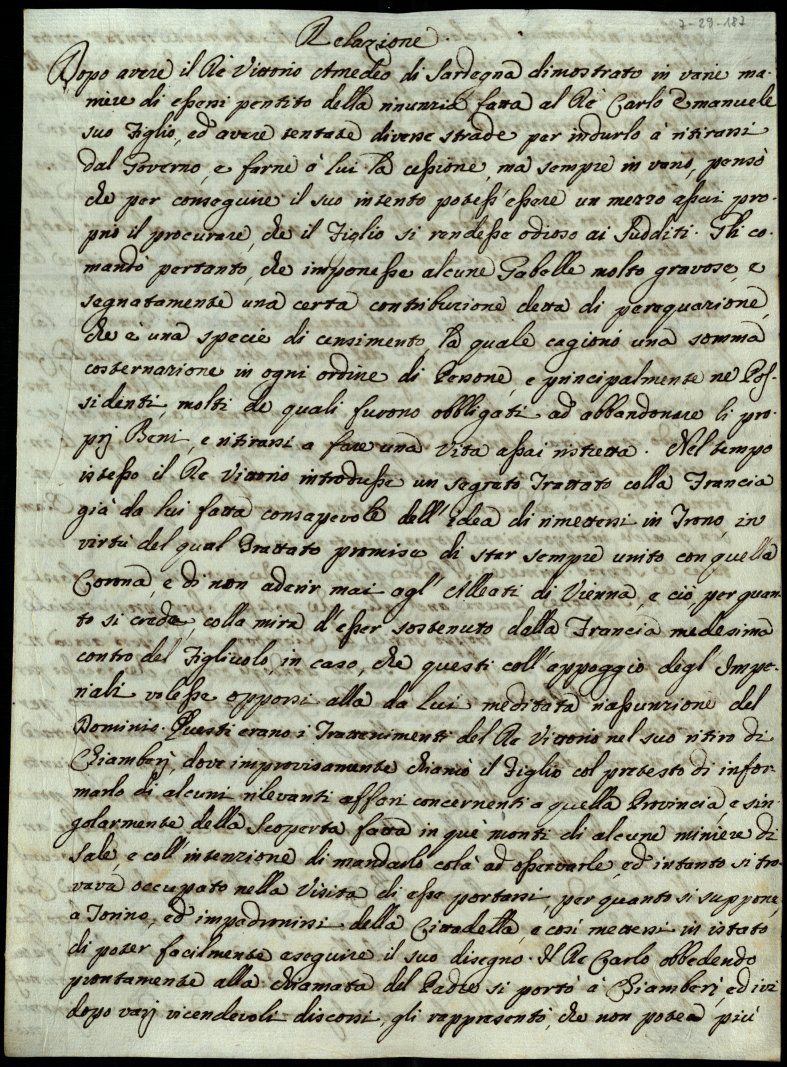 7-29-187
Relazione.
Dopo avere il Rè Vittorio Amedeo di Sardegna dimostrato in varie ma-
niere di essersi pentito della rinunzia fatta al Rè Carlo Emanuele
suo Figlio, ed avere tentate diverse strade per indurlo à ritirarsi
dal Governo, e farne à lui la cessione, ma sempre in vano, pensò
che per conseguire il suo intento potess' essere un mezzo assai pro-
prio il procurare, che il Figlio si rendesse odioso ai Sudditi. Gli co-
mandò pertanto, che imponesse alcune Gabelle molto gravose, e
segnatamente una certa contribuzione detta di perequazione,
che è una specie di censimento la quale cagionò una somma
costernazione in ogni ordine di Persone, e principalmente ne' Pos-
sidenti, molti de quali furono obbligati ad abbandonare li pro-
prj Beni, e ritirarsi a fare una Vita assai ristretta. Nel tempo
istesso il Re Vittorio introdusse un segreto Trattato colla Francia
già da lui fatta consapevole dell' idea di rimettersi in Trono, in
virtù del qual Trattato promise di star sempre unito con quella
Corona, e di non aderir mai agl' Alleati di Vienna, e ciò, per quan-
to si crede, colla mira d' esser sostenuto dalla Francia medesima
contro del Figliuolo, in caso, che questi coll' appoggio degl' Impe-
riali volesse opporsi alla da lui meditata riassunzione del
Dominio. Questi erano i Trattenimenti del Re Vittorio nel suo ritiro di
Chiamberj, dove improvisamente chiamò il Figlio col pretesto di infor-
marlo di alcuni rilevanti affari concernenti a quella Provincia, e sin-
golarmente della Scoperta fatta in què monti di alcune miniere di
Sale, e coll' intenzione di mandarlo colà ad osservarle, ed intanto si tro-
vava occupato nella Visita di esse portarsi, per quanto si suppone,
a Torino, ed impadronirsi della Cittadella, e così mettersi in istato
di poter facilmente eseguire il suo disegno. Il Re Carlo obbedendo
prontamente alla chiamata del Padre si portò à Chiamberj, ed ivi
dopo varj vicendevoli discorsi, gli rappresentò, che non potea più